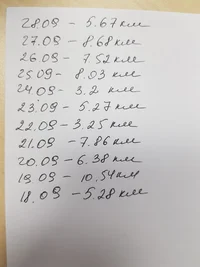 28.09 - 5.67 км
27.09 - 8.68 км
26.09 - 7.52 км
25.09 - 8.03 км
24.09 - 3.2 км
23.09 - 5.27 км
22.09 - 3.25 км
21.09 - 7.86 км
20.09 - 6.38 км
19.09 - 10.54 км
18.09 - 5.28 км